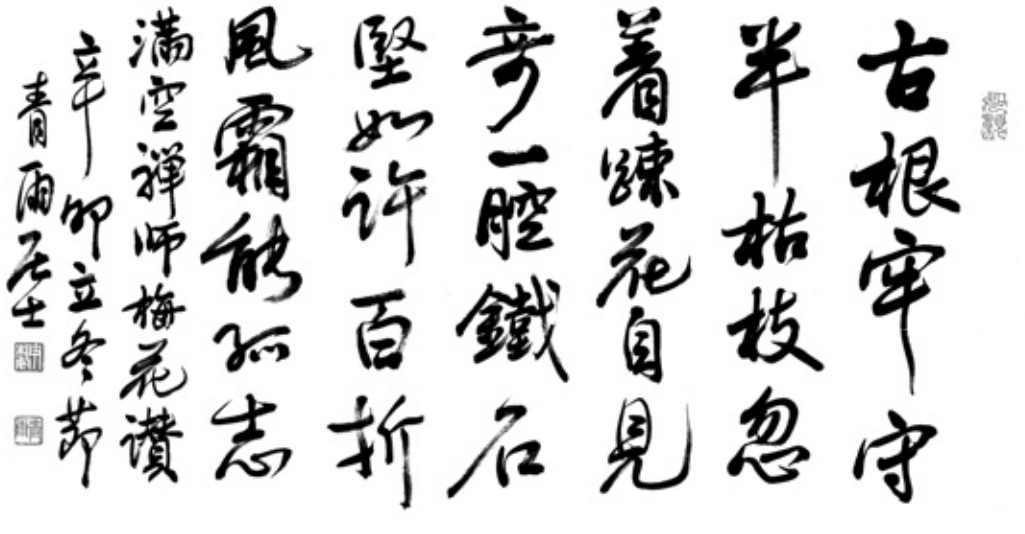 古根牢守
半枯枝忽
着疎花自見
奇一腔鐵石
堅如許百折
風霜能孤志
滿空禪師梅花讚
辛卯立冬節
青雨居士